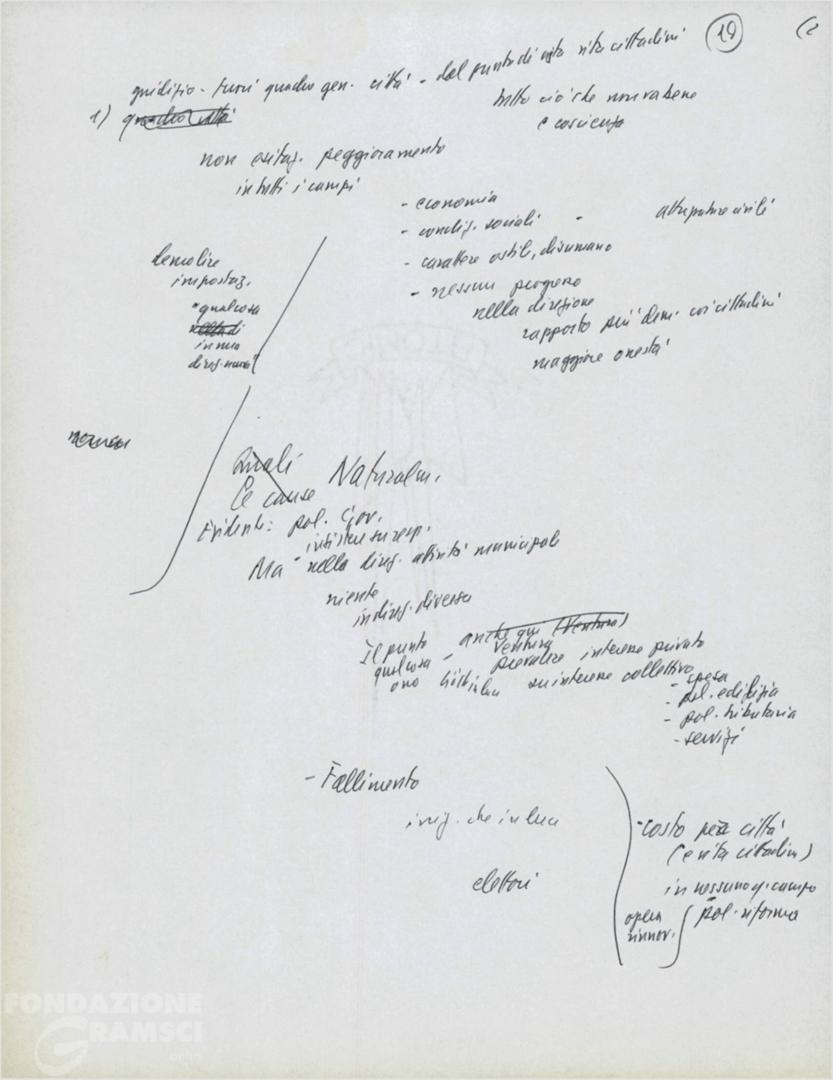 19
giudizio - fuori quadro gen. città - dal punto di vista vita cittadini
1) quadro città
tutto ciò che non va bene
è coscienza
non esitaz. peggioramento
in tutti i campi
- economia
- condiz. sociali - attrezzature civili
- carattere ostile, disumano
- nessun progresso
nella direzione
rapporto più dem. coi cittadini
maggiore onestà
demolire
impostaz.
"qualcosa
in una
direz. nuova"
Quali Naturalm.
Le cause
Evidente: pol. Gov.
Ma nella direz. attività municipale
niente
indirizz. diversa
Il punto - anche qui (Ventura)
Ventura
qualcosa - prevalere interesse privato
su interesse collettivo
- spesa
- pol. edilizia
- pol. tributaria
- servizi
- Fallimento
iniz. che in luce
elettori
- costo per città
(e vita cittadini)
in nessuno q. campo
opera
rinnov.
pol. riforma
FONDAZIONE
GRAMSCI
onlus